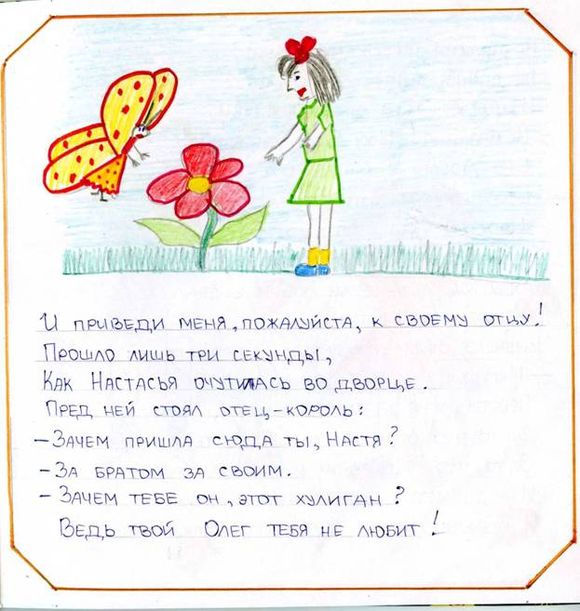 И приведи меня, пожалуйста, к своему отцу!
Прошло лишь три секунды,
Как Настасья очутилась во дворце.
Пред ней стоял отец-король:
– Зачем пришла сюда ты, Настя?
– За братом за своим.
– Зачем тебе он, этот хулиган?
Ведь твой Олег тебя не любит!